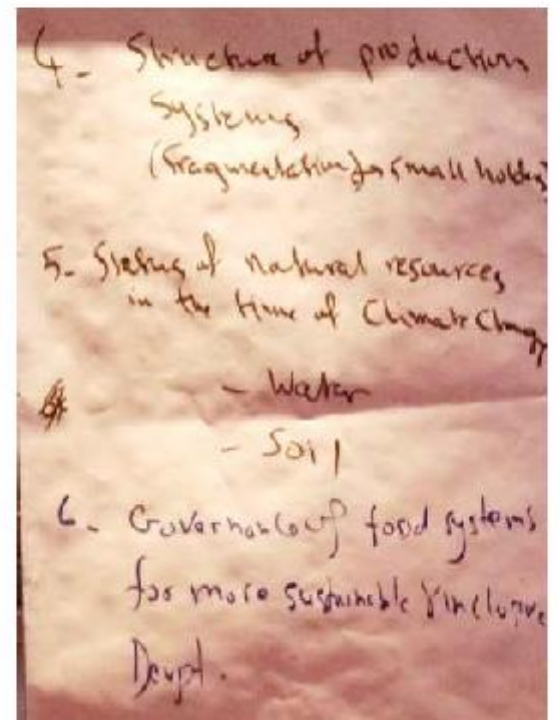 4- Structure of production
Systems
(Fragmentation for small holders)
5- Status of natural resources
in the time of Climate Change
- Water
- Soil
6- Governance of food systems
for more sustainable & inclusive
Devpt.